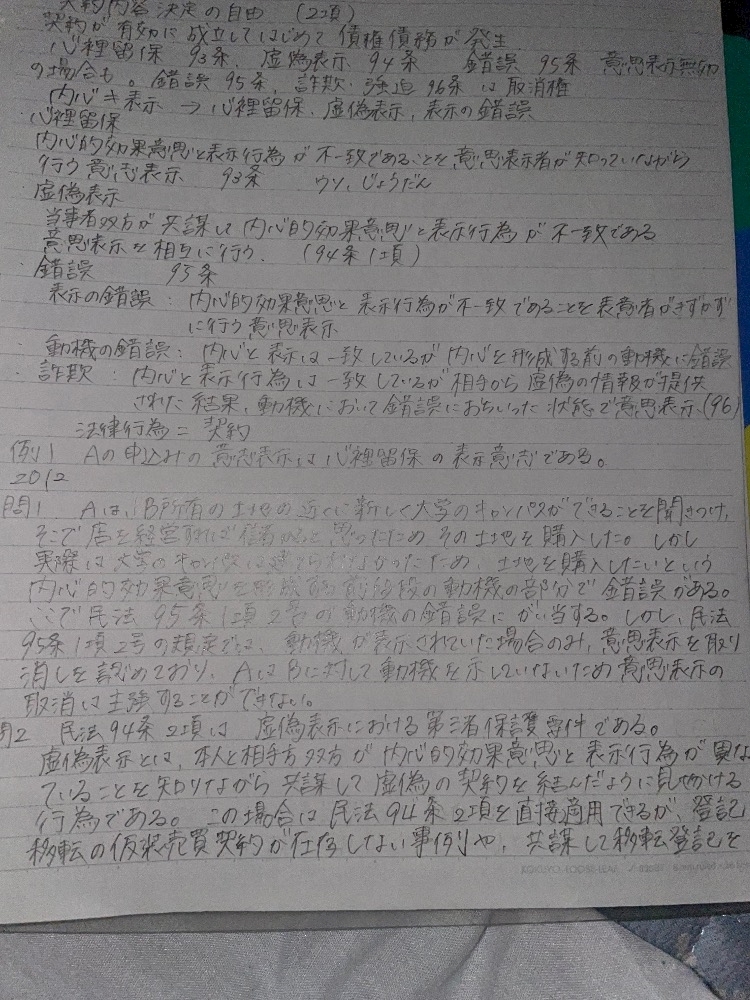 契約内容決定の自由 (2項)
契約が有効に成立してはじめて債権債務が発生
心裡留保 93条、虚偽表示 94条 錯誤 95条 意思表示無効
の場合も。錯誤 95条、詐欺・強迫 96条は取消権
内心≠表示 → 心裡留保、虚偽表示、表示の錯誤
心裡留保
内心的効果意思と表示行為が不一致であることを意思表示者が知っていながら
行う意思表示 93条 ウソ、じょうだん
虚偽表示
当事者双方が共謀して内心的効果意思と表示行為が不一致である
意思表示を相互に行う。(94条1項)
錯誤 95条
表示の錯誤:内心的効果意思と表示行為が不一致であることを表意者がきずかず
に行う意思表示
・動機の錯誤:内心と表示は一致しているが内心を形成する前の動機に錯誤
・詐欺:内心と表示行為は一致しているが相手から虚偽の情報が提供
された結果、動機において錯誤におちいった状態で意思表示、(96)
法律行為=契約
例1 Aの申込みの意思表示は心裡留保の表示意志である。
2012
問1. Aは、B所有の土地の近くに新しく大学のキャンパスができることを聞きつけ、
そこで店を経営すれば儲かると思ったためその土地を購入した。しかし
実際は大学のキャンパスは建てられなかったため、土地を購入したいという
内心的効果意思を形成する前段階の動機の部分で錯誤がある。
ここで民法95条1項2号の動機の錯誤にがい当する。しかし、民法
95条1項2号の規定では、動機が表示されていた場合のみ、意思表示を取り
消しを認めており、AはBに対して動機を示していないため意思表示の
取消は主強することができない。
問2 民法94条2項は虚偽表示における第三者保護要件である。
虚偽表示とは、本人と相手方双方が内心的効果意思と表示行為が異な
ていることを知りながら共謀して虚偽の契約を結んだように見せかける
行為である。この場合は民法94条2項を直接適用できるが、登記
移転の仮装売買契約が存在しない事例や、共謀して移転登記を